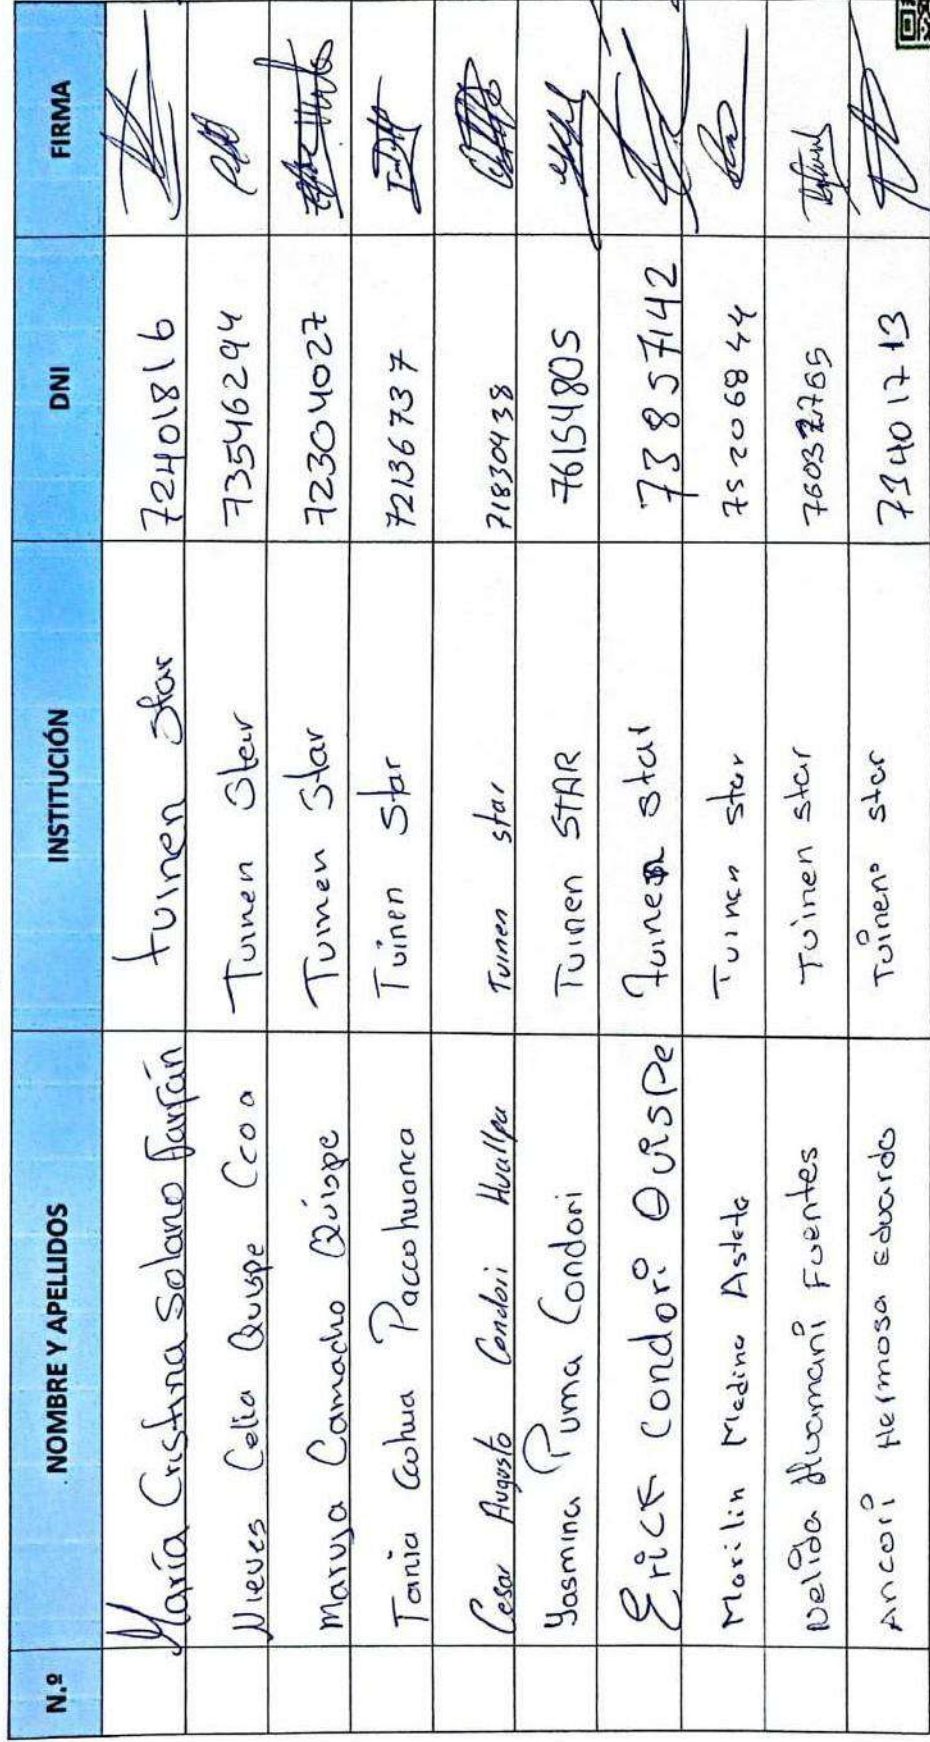 N.º NOMBRE Y APELLIDOS INSTITUCIÓN DNI FIRMA
María Cristina Solano Farfán tuinen star 72401816
Nieves Celia Quispe Ccoa Tuinen Star 73546294
Maruja Camacho Quispe Tuinen Star 72304027
Tania Ccahua Paccohuanca Tuinen Star 72136737
Cesar Augusto Condori Huallpa Tuinen star 71830438
Yasmina Puma Condori Tuinen STAR 76154805
Erick Condori Quispe tuinen star 73857142
Marilin Medina Asteto Tuinen star 75206844
Nelida Huamaní Fuentes Tuinen star
Ancori Hermosa Eduardo Tuinen star 73401713